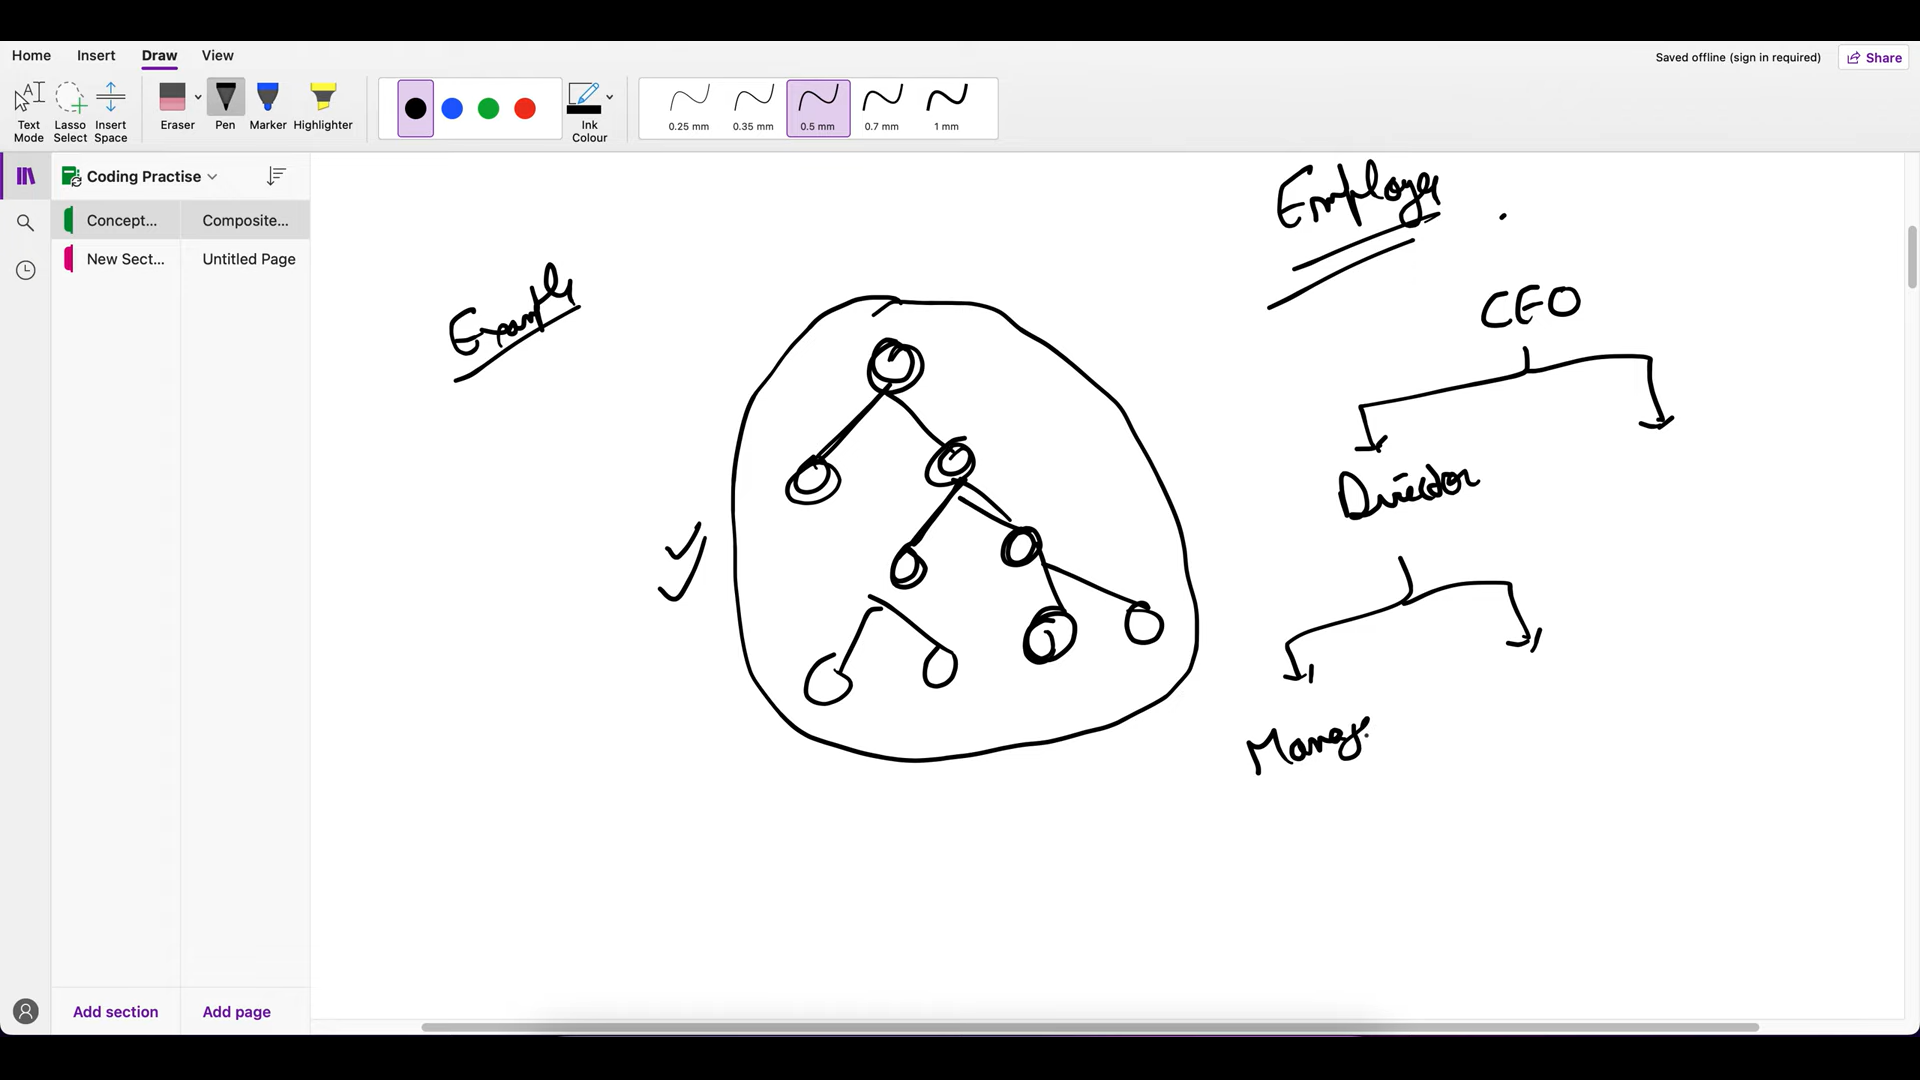 Home Insert Draw View
Saved offline (sign in required) Share
Text Mode
Lasso Select
Insert Space
Eraser
Pen
Marker
Highlighter
Ink Colour
0.25 mm
0.35 mm
0.5 mm
0.7 mm
1 mm
Coding Practise
Concept... Composite...
New Sect... Untitled Page
Example
Employe
CEO
Director
Manag.
Add section Add page